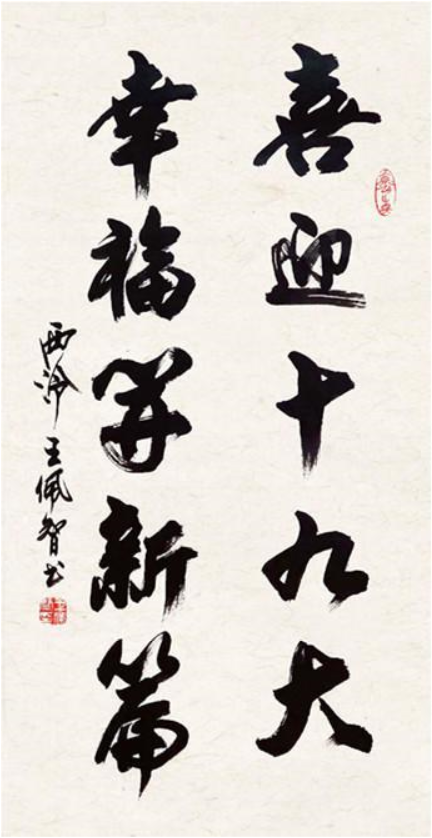 喜迎十九大
幸福开新篇
西泠 王佩智书